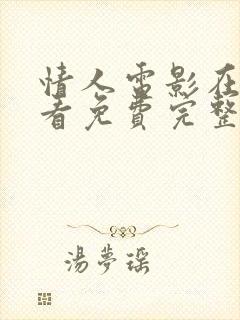 情人电影在
看免费完整
湯夢瑶